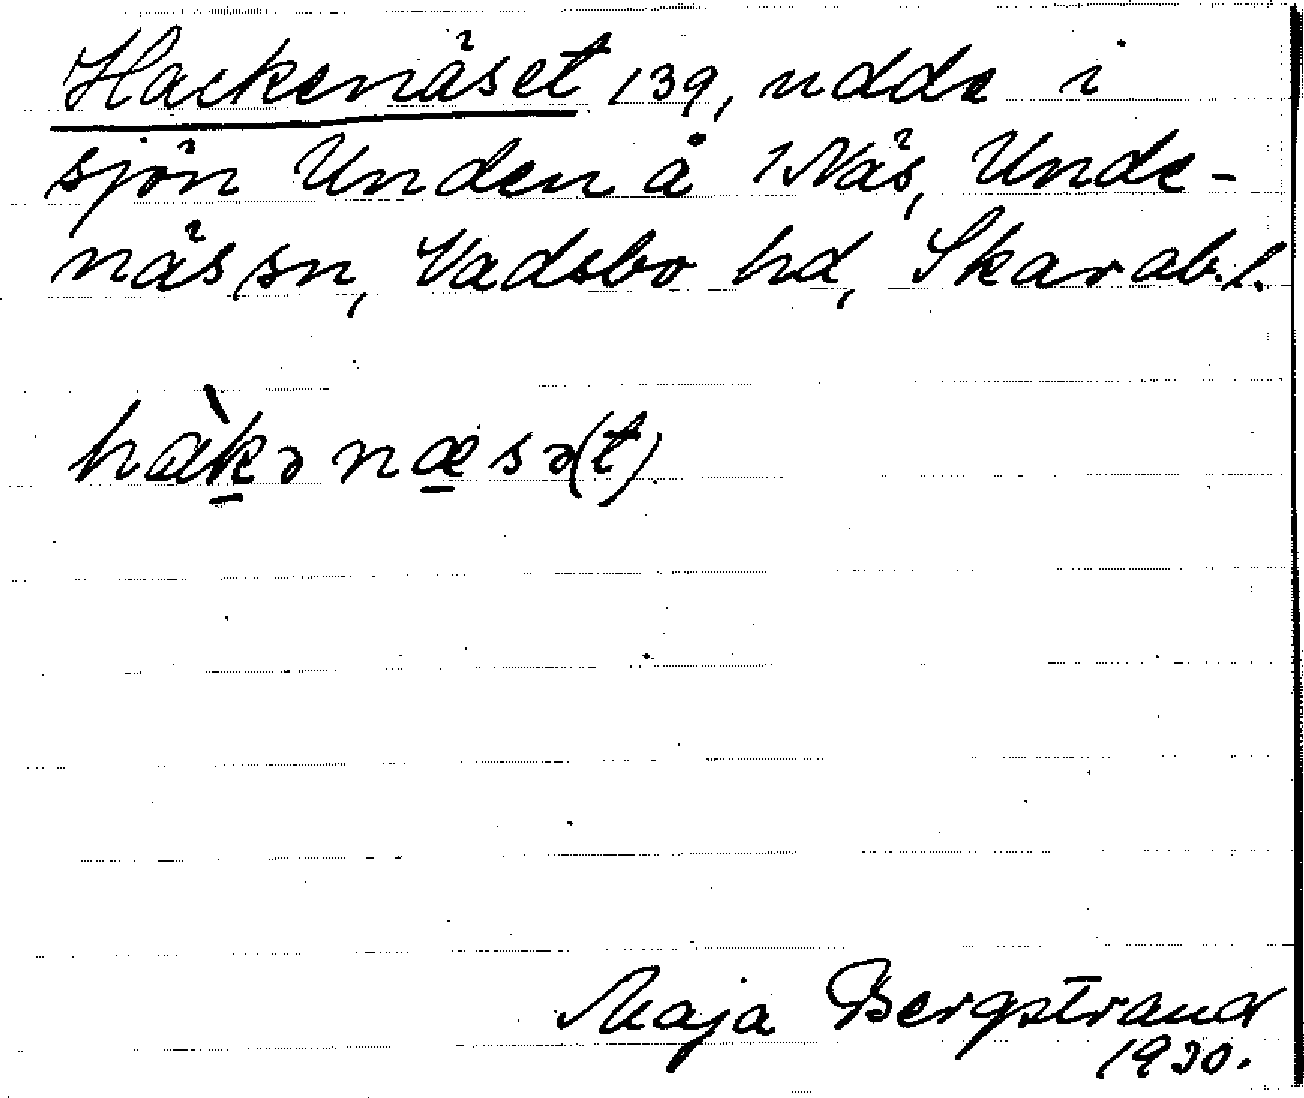 Hackenäset 139, udde i
sjön Unden å Näs, Unde-
näs sn, Vadsbo hd, Skarab.l.
hàkənæsə(t)
Maja Bergstrand
1930.